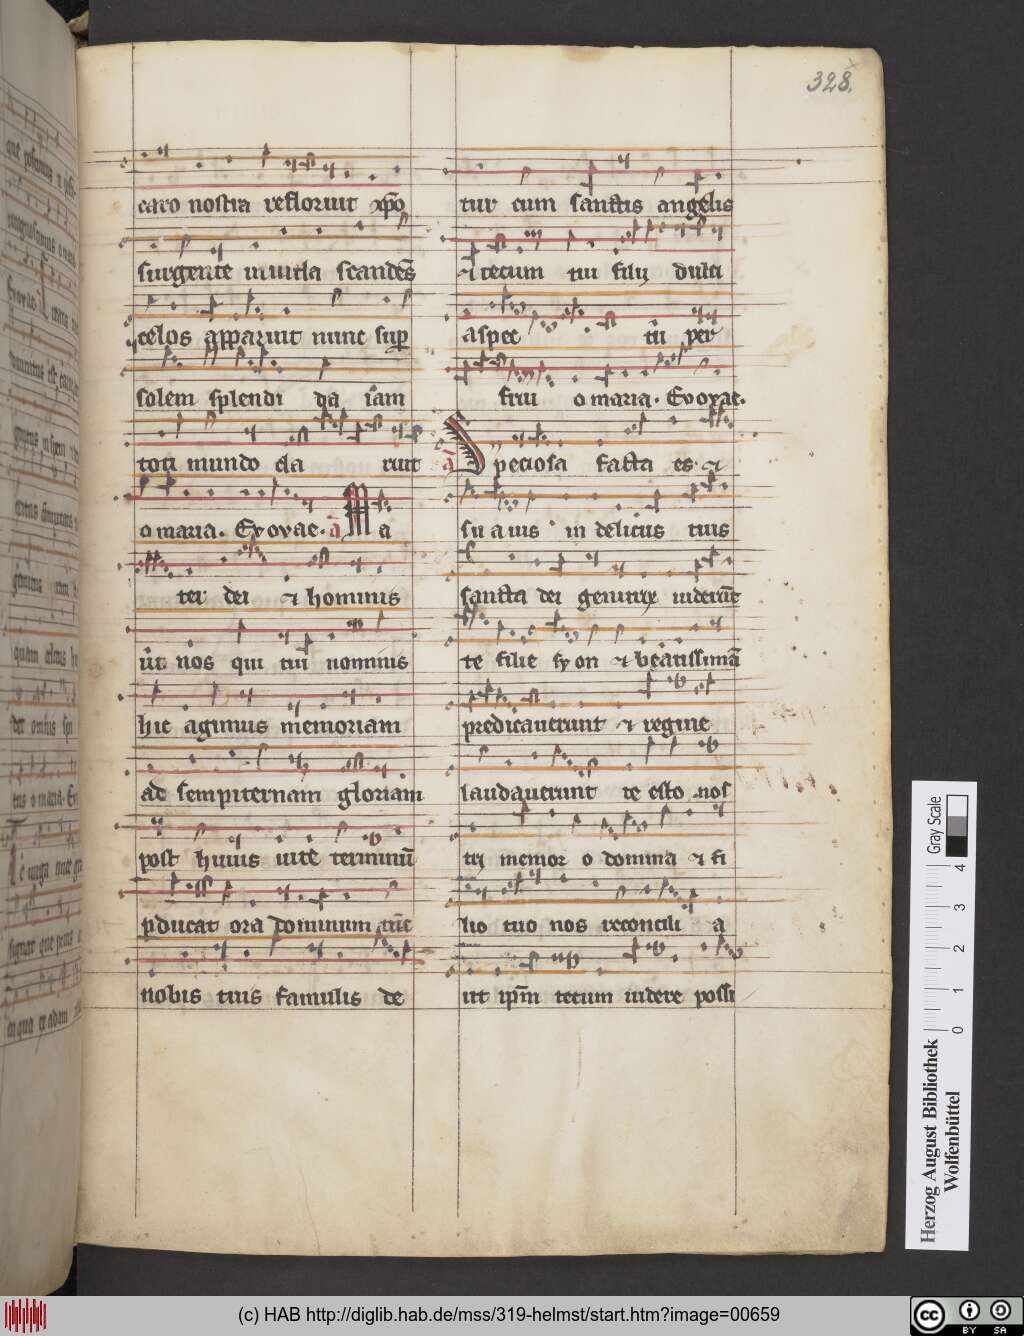 328.
caro nostra refloruit xpo
surgente in uirla scandēs
celos apparuit nunc sup
solem splendi da iam
toti mundo cla ruit
o maria. Evovae. a Ma
ter dei et hominis
ut nos qui tui nominis
hic agimus memoriam
ad sempiternam gloriam
post huius uite terminū
pducat ora dominum tūc
nobis tuis famulis de
tur cum sanctis angelis
et tecum tui filij dulci
aspec tu per
frui o maria. Evovae.
a Speciosa facta es et
su a uis in deliciis tuis
sancta dei genitrix uiderūt
te filie syon et beatissimā
predicauerunt et regine
laudauerunt te esto nos
tri memor o domina et fi
lio tuo nos reconcili a
ut ipm tecum uidere possi
Herzog August Bibliothek
Wolfenbüttel
Gray Scale
0 1 2 3 4
(c) HAB http://diglib.hab.de/mss/319-helmst/start.htm?image=00659
cc BY SA